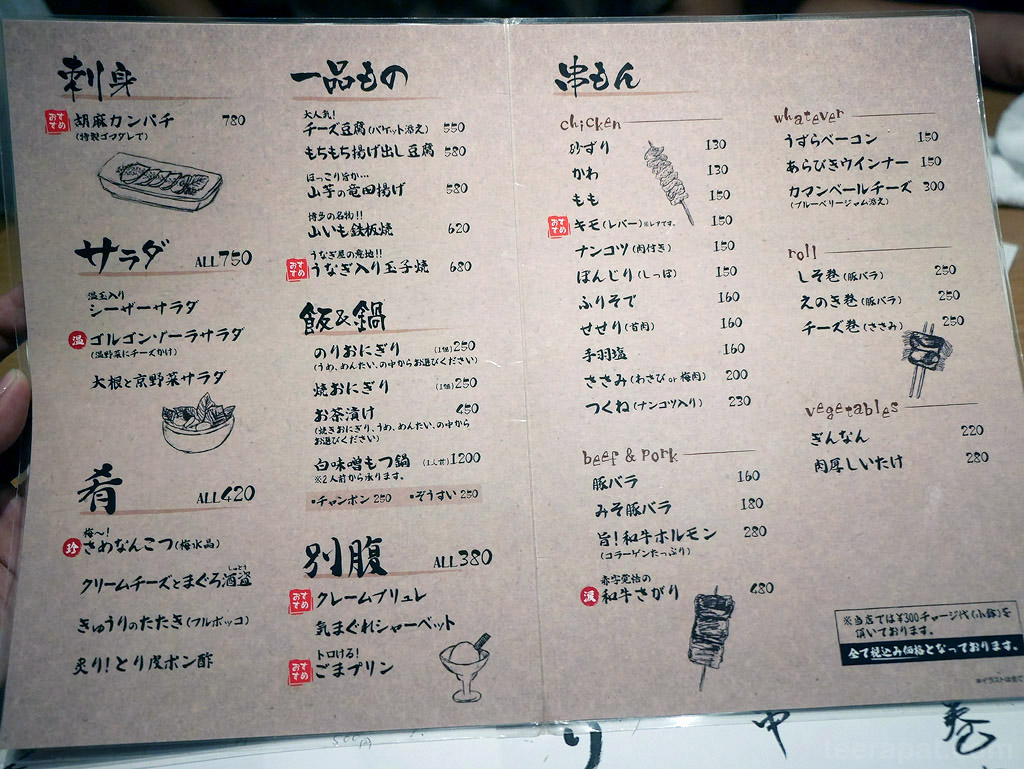 刺身
おすすめ
胡麻カンパチ 780
(特製ゴマダレで)
サラダ ALL750
温玉入り
シーザーサラダ
温
ゴルゴンゾーラサラダ
(温野菜にチーズかけ)
大根と京野菜サラダ
肴 ALL420
梅〜!
珍
さめなんこつ(梅水晶)
クリームチーズとまぐろ酒盗
しゅとう
きゅうりのたたき(フルボッコ)
炙り!とり皮ポン酢
一品もの
大人気!
チーズ豆腐(バケット添え) 550
もちもち揚げ出し豆腐 580
ほっこり旨か…
山芋の竜田揚げ 580
博多の名物!!
山いも鉄板焼 620
うなぎ屋の意地!!
おすすめ
うなぎ入り玉子焼 680
飯&鍋
のりおにぎり (1個)250
(うめ、めんたい、の中からお選びください)
焼おにぎり (1個)250
お茶漬け 450
(焼きおにぎり、うめ、めんたい、の中から
お選びください)
白味噌もつ鍋 (1人前)1200
※2人前から承ります。
・チャンポン 250 ・ぞうすい 250
別腹 ALL380
おすすめ
クレームブリュレ
気まぐれシャーベット
トロける!
おすすめ
ごまプリン
串もん
chicken
砂ずり 130
かわ 130
もも 150
おすすめ
キモ(レバー)※レアです。 150
ナンコツ(肉付き) 150
ぼんじり(しっぽ) 150
ふりそで 160
せせり(首肉) 160
手羽塩 160
ささみ(わさび or 梅肉) 200
つくね(ナンコツ入り) 230
beef & pork
豚バラ 160
みそ豚バラ 180
旨!和牛ホルモン 280
(コラーゲンたっぷり)
赤字覚悟の
涙
和牛さがり 480
whatever
うずらベーコン 150
あらびきウインナー 150
カマンベールチーズ 300
(ブルーベリージャム添え)
roll
しそ巻(豚バラ) 250
えのき巻(豚バラ) 250
チーズ巻(ささみ) 250
vegetables
ぎんなん 220
肉厚しいたけ 280
※当店では¥300チャージ代(小鉢)を
頂いております。
全て税込み価格となっております。
※イラストは全て
り
中
巻